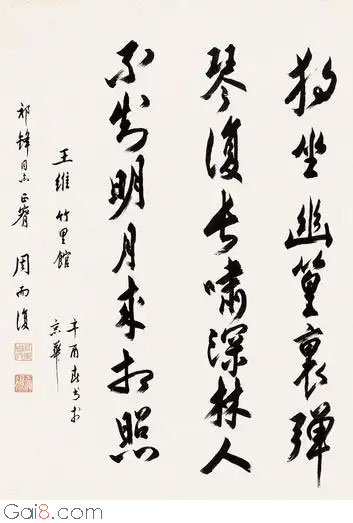 独坐幽篁裏彈
琴復长嘯深林人
不知明月来相照
王維 竹里館
辛酉春书于
京華
祁锋同志正
周而復
Gai8.com